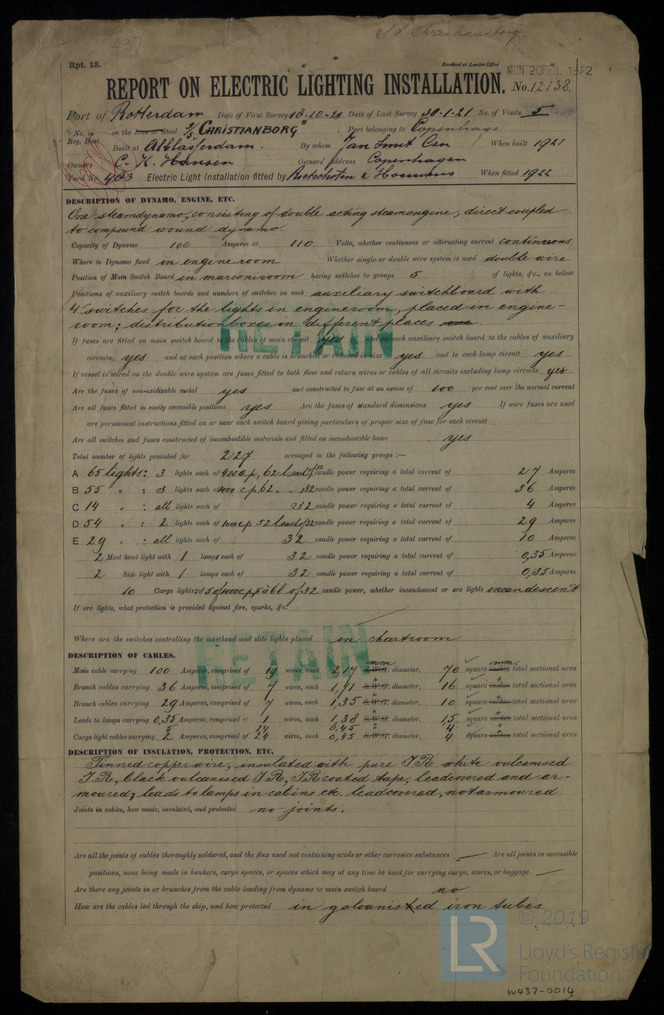 437
Rpt. 13.
Received at London Office
MON 20 FEB. 1922
REPORT ON ELECTRIC LIGHTING INSTALLATION. No. 12138.
Port of Rotterdam Date of First Survey 18-10-20 Date of Last Survey 30-1-21 No. of Visits 5
No. in Reg. Book on the Iron or Steel S/S "CHRISTIANBORG" Port belonging to Copenhagen
Built at Alblasserdam. By whom Jan Smit Czn When built 1921
Owners C. K. Hansen Owners' Address Copenhagen
Yard No. 403 Electric Light Installation fitted by Rietschoten & Houwens When fitted 1922
DESCRIPTION OF DYNAMO, ENGINE, ETC.
One steamdynamo, consisting of double acting steamengine, direct coupled
to compound wound dynamo.
Capacity of Dynamo 100 Amperes at 110 Volts, whether continuous or alternating current continuous
Where is Dynamo fixed in engine room Whether single or double wire system is used double wire
Position of Main Switch Board in marconiroom having switches to groups 5 of lights, &c., as below
Positions of auxiliary switch boards and numbers of switches on each auxiliary switchboard with
4 switches for the lights in engineroom, placed in engine-
room; distributionboxes in different places
RETAIN
If fuses are fitted on main switch board to the cables of main circuit yes and on each auxiliary switch board to the cables of auxiliary
circuits yes and at each position where a cable is branched or reduced in size yes and to each lamp circuit yes
If vessel is wired on the double wire system are fuses fitted to both flow and return wires or cables of all circuits including lamp circuits yes
Are the fuses of non-oxidizable metal yes and constructed to fuse at an excess of 100 per cent over the normal current
Are all fuses fitted in easily accessible positions yes Are the fuses of standard dimensions yes If wire fuses are used
are permanent instructions fitted on or near each switch board giving particulars of proper size of fuse for each circuit
Are all switches and fuses constructed of incombustible materials and fitted on incombustible bases yes
Total number of lights provided for 227 arranged in the following groups :—
A 65 lights: 3 lights each of 400 c.p., 62 candle power requiring a total current of 27 Amperes
B 55 " : 3 lights each of 400 c.p. 62 " 32 candle power requiring a total current of 36 Amperes
C 14 " : all lights each of 32 candle power requiring a total current of 4 Amperes
D 54 " : 2 lights each of 400 c.p. 52 32 candle power requiring a total current of 29 Amperes
E 29 " : all lights each of 32 candle power requiring a total current of 10 Amperes
2 Mast head light with 1 lamps each of 32 candle power requiring a total current of 0,35 Amperes
2 Side light with 1 lamps each of 32 candle power requiring a total current of 0,35 Amperes
10 Cargo lights of 32 candle power, whether incandescent or arc lights incandescent
If arc lights, what protection is provided against fire, sparks, &c.
Where are the switches controlling the masthead and side lights placed in chartroom
RETAIN
DESCRIPTION OF CABLES.
Main cable carrying 100 Amperes, comprised of 19 wires, each 2,17 S.W.G. mm diameter, 70 square inches mm total sectional area
Branch cables carrying 36 Amperes, comprised of 7 wires, each 1,71 S.W.G. " diameter, 16 square inches " total sectional area
Branch cables carrying 29 Amperes, comprised of 7 wires, each 1,35 S.W.G. " diameter, 10 square inches " total sectional area
Leads to lamps carrying 0,35 Amperes, comprised of 1 wires, each 1,38 S.W.G. " diameter, 1,5 square inches " total sectional area
Cargo light cables carrying 2 Amperes, comprised of 24 wires, each 0,45 S.W.G. diameter, 4 square inches total sectional area
DESCRIPTION OF INSULATION, PROTECTION, ETC.
Tinned copper wire, insulated with pure I.R. white vulcanised
I.R., black vulcanised I.R., I.R. coated tape, leadcovered and ar-
moured; leads to lamps in cabins etc. leadcovered, not armoured.
Joints in cables, how made, insulated, and protected no joints.
Are all the joints of cables thoroughly soldered, and the flux used not containing acids or other corrosive substances — Are all joints in accessible
positions, none being made in bunkers, cargo spaces, or spaces which may at any time be used for carrying cargo, stores, or baggage —
Are there any joints in or branches from the cable leading from dynamo to main switch board no
How are the cables led through the ship, and how protected in galvanished iron tubes
© 2019
LR
Lloyd's Register
Foundation
W437-0014